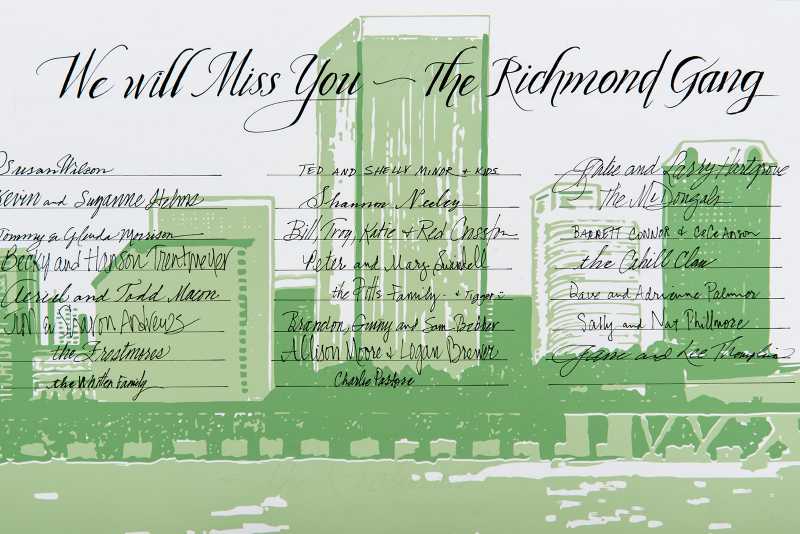 We will Miss You — The Richmond Gang
Susan Wilson
Kevin and Suzanne Helms
Tommy & Glenda Morrison
Becky and Hanson Trentmeyer
Aeriel and Todd Macon
and Sharon Andrews
the
the Whitten Family
TED AND SHELLY MINOR & KIDS
Shannon Neeley
Bill, Troy, Katie & Red
Peter and Mary
the Pitts Family - & Tigger
Brandon, Ginny and Sam
Allison Moore & Logan Brewer
Charlie Pastore
Katie and Larry Hartgrove
The McDougals
BARRETT CONNOR & CeCe
the Cahill Clan
Dave and Adrienne Palmor
Sally and Nat Phillmore
and Lee